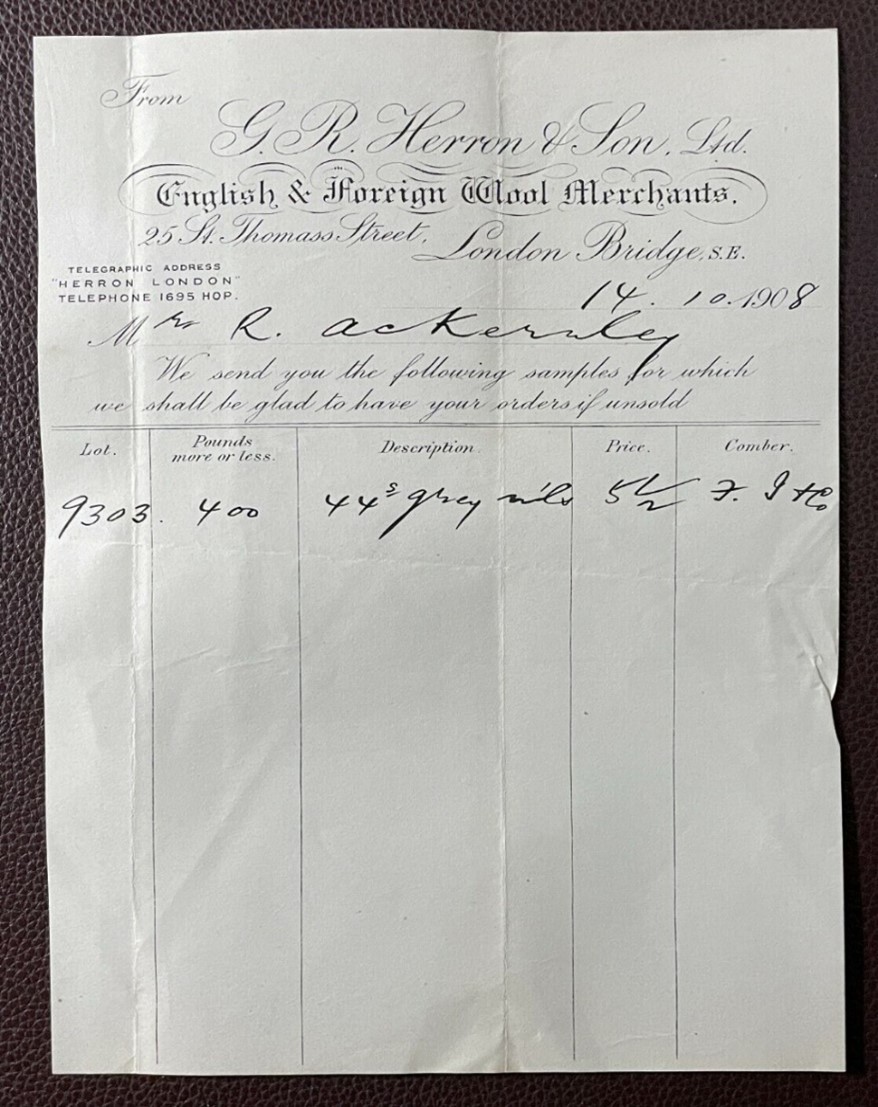 From
G. R. Herron & Son, Ltd.
English & Foreign Wool Merchants.
25 St. Thomass Street, London Bridge, S.E.
TELEGRAPHIC ADDRESS
"HERRON LONDON"
TELEPHONE 1695 HOP.
14.10.1908
Mr R. Ackernley
We send you the following samples for which
we shall be glad to have your orders if unsold
Lot. Pounds more or less. Description. Price. Comber.
9303. 400 44s grey 5 1/2 F. & Co